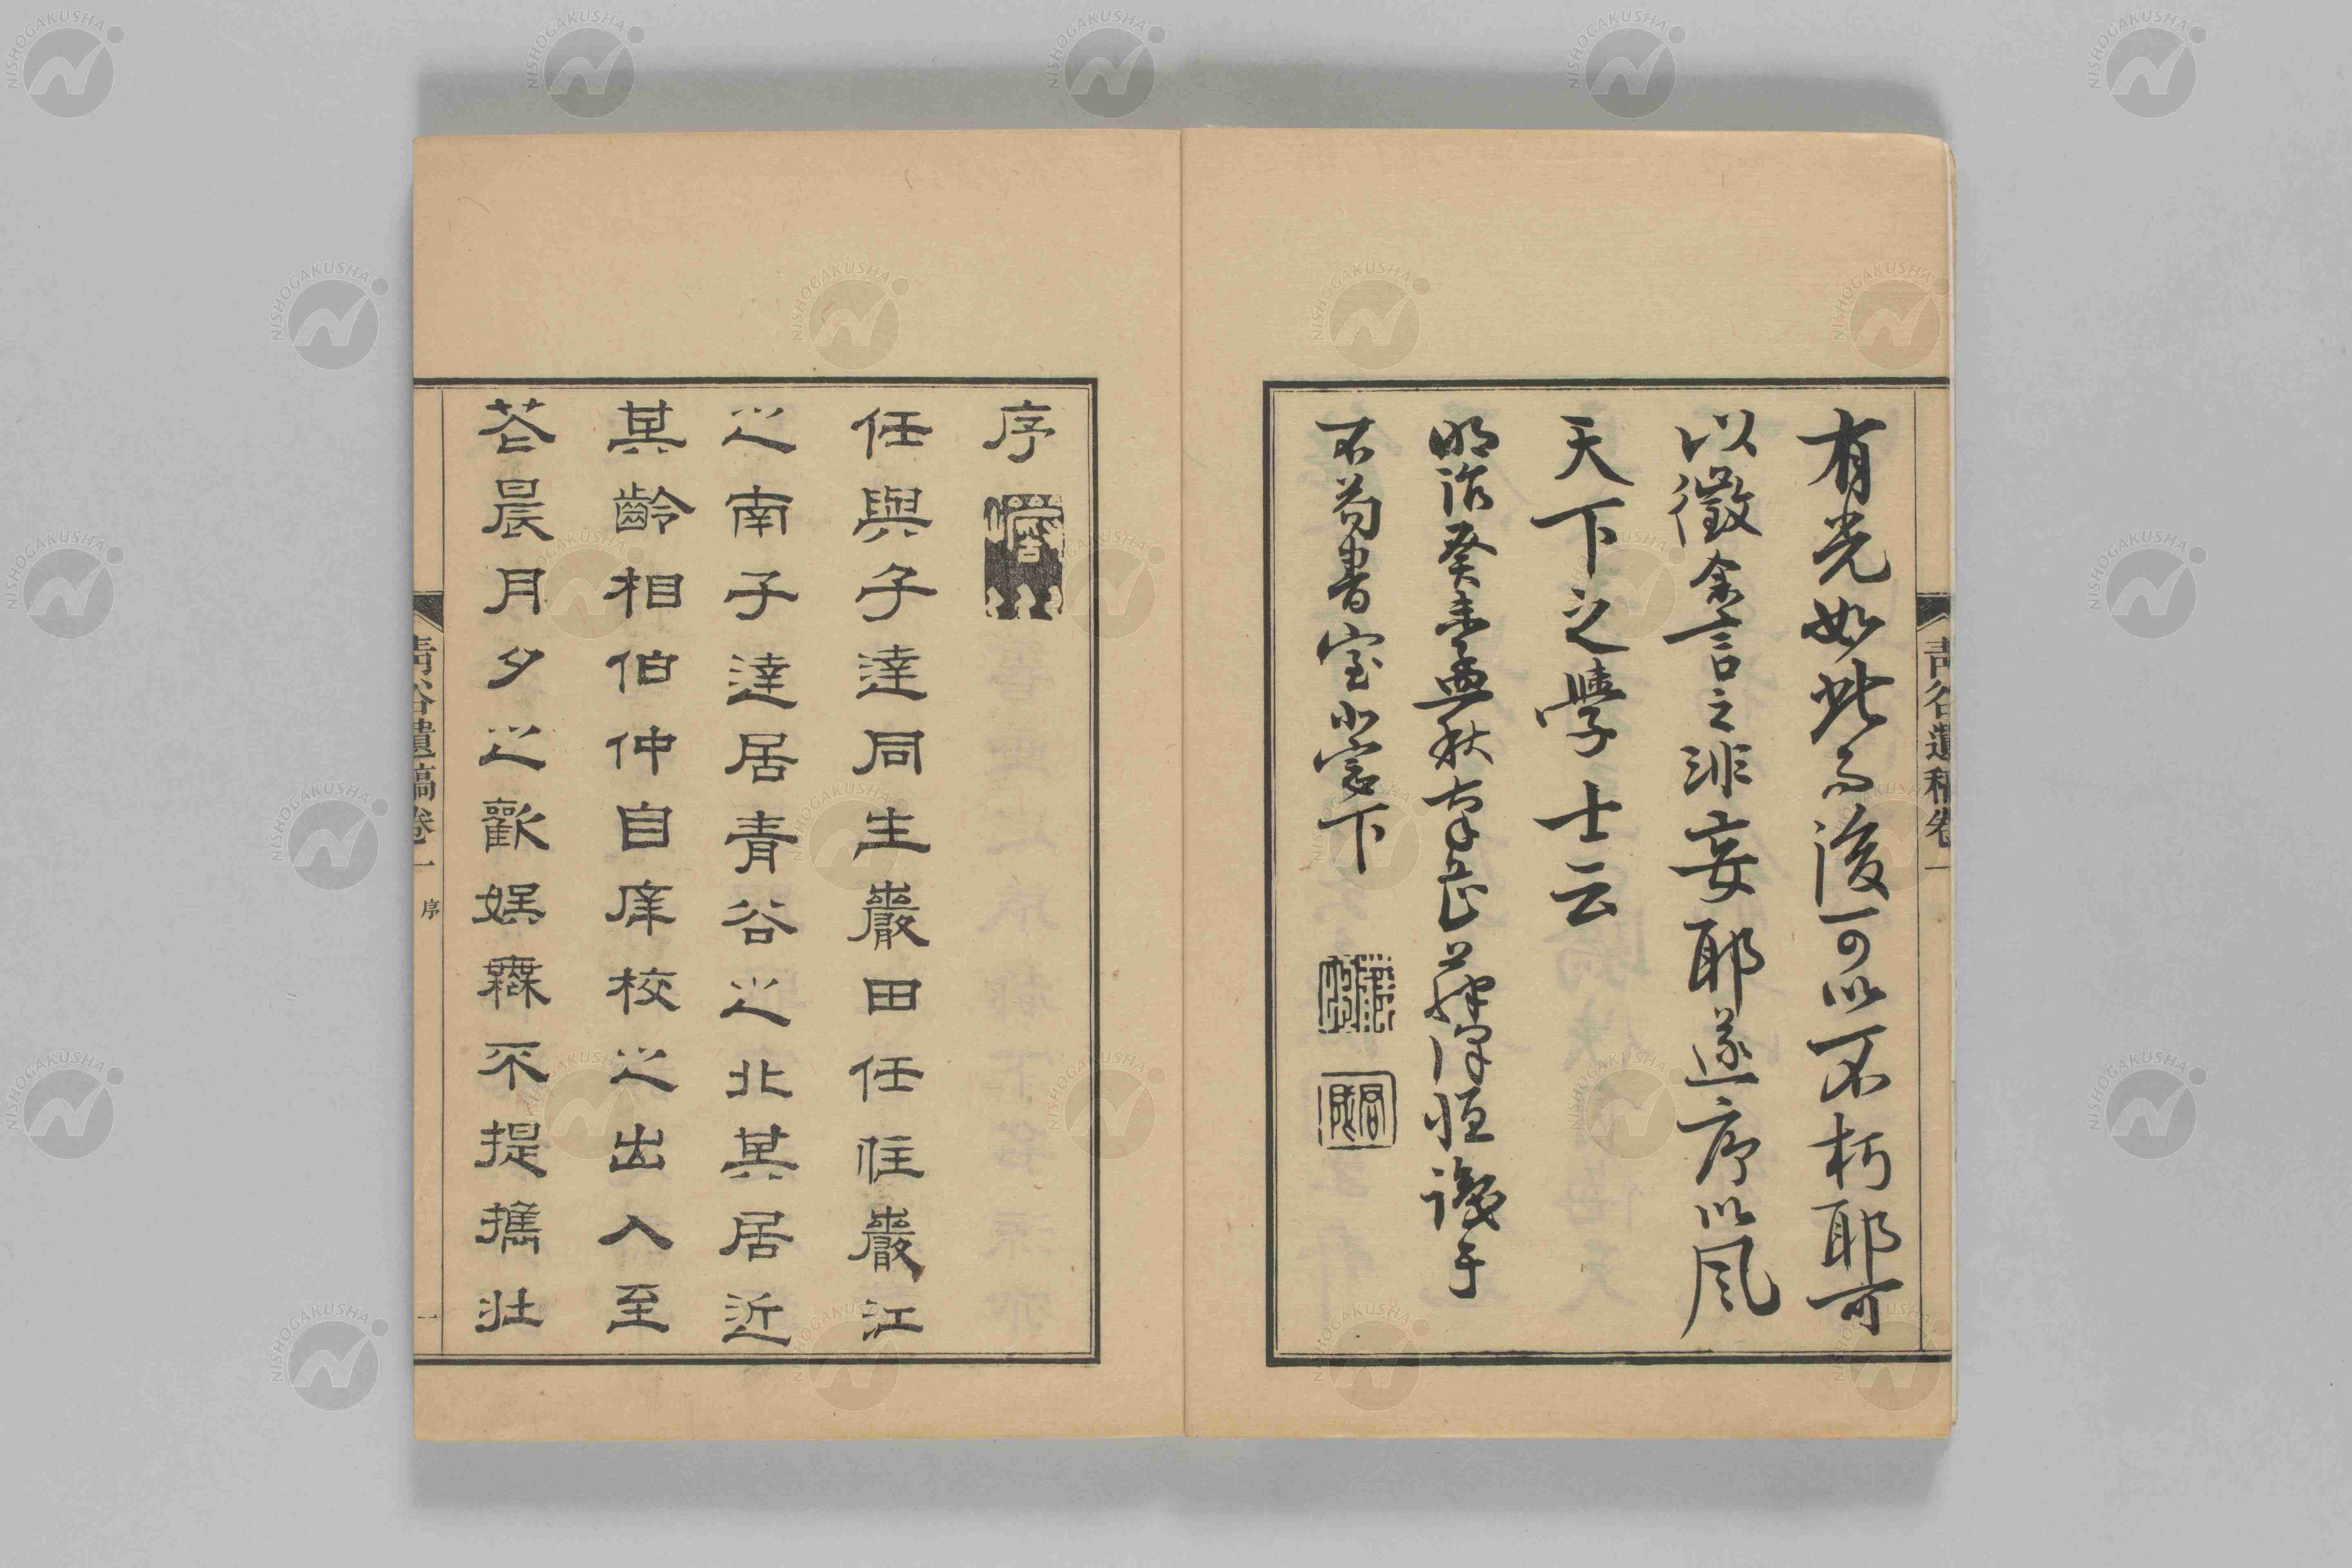 有光如此而後可以不朽耶可
以徵余言之非妄耶遂序以風
天下之學士云
明治癸未孟秋大學長谷藤澤恒識于
不苟書室小窓下
靑谷遺稿卷一
序
任與子達同生巖田任住巖江
之南子達居青谷之北其居近
其齡相伯仲自庠校之出入至
花晨月夕之歡娛無不提攜壯
靑谷遺稿卷一
序
一
NISHOGAKUSHA